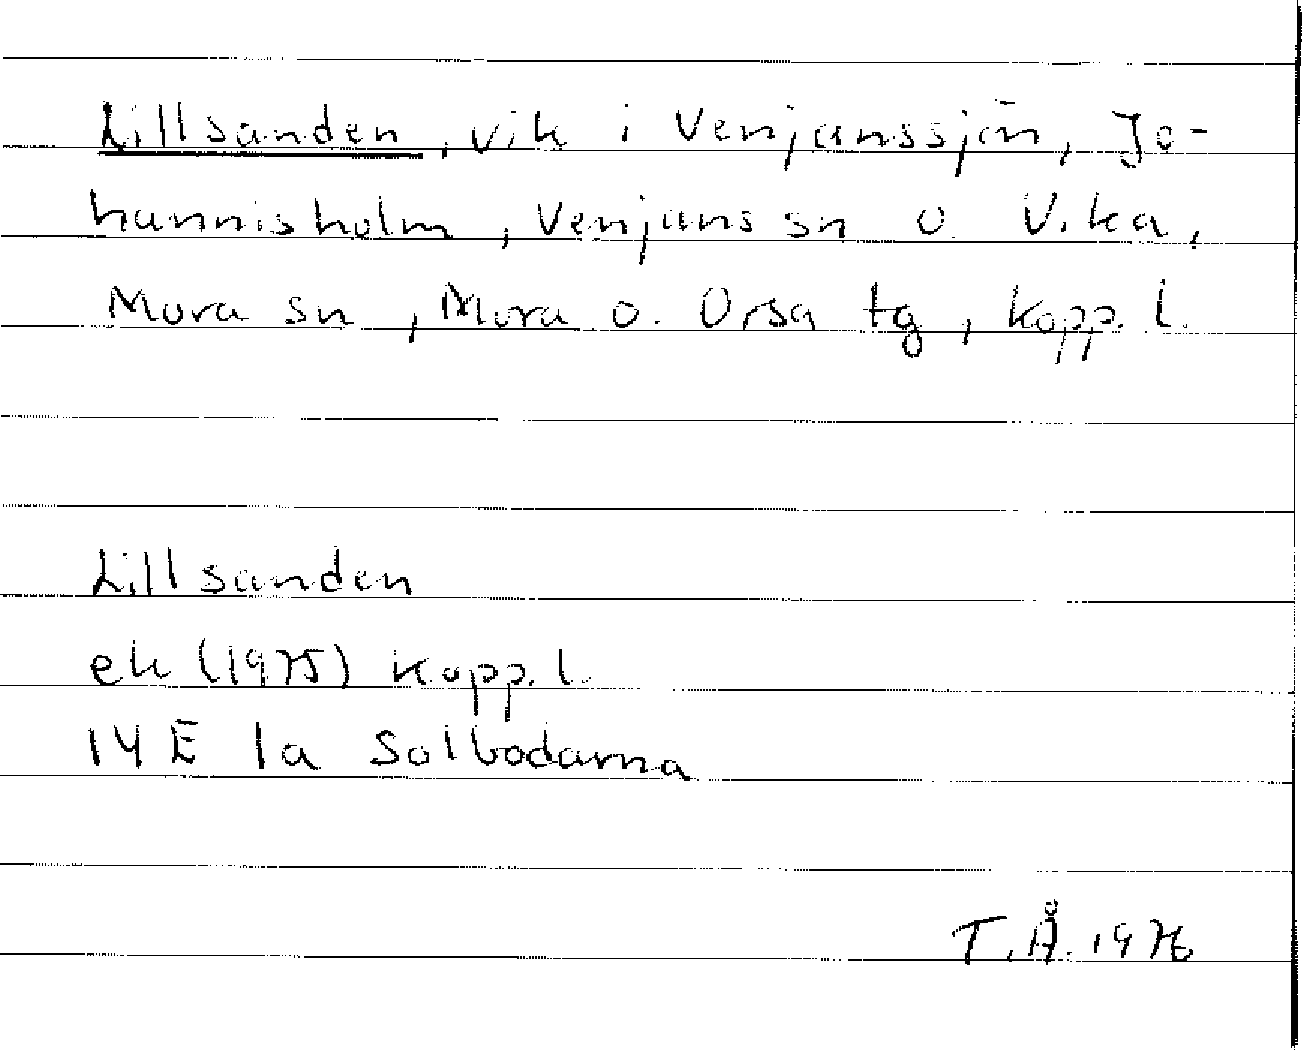 Lillsanden, vik i Venjanssjön, Jo-
hannisholm, Venjans sn o. Vika,
Mora sn, Mora o. Orsa tg, Kopp. l.
Lillsanden
ek (1975) Kopp. l.
14E 1a Solbodarna
T.Å. 1976